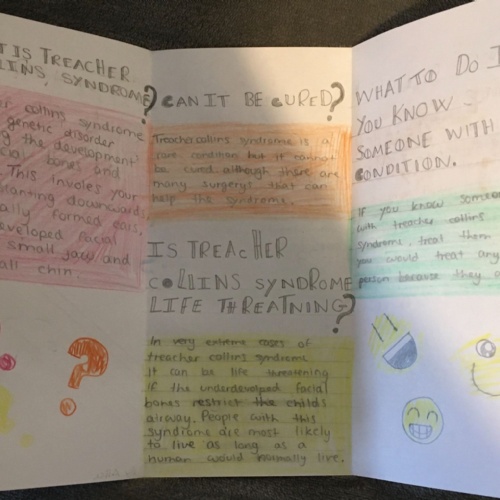 T IS TREACHER
LLINS, SYNDROME?
er collins syndrome
genetic disorder
g the development
cial bones and
This involes your
slanting downwards
ally formed ears,
eveloped facial
small jaw and
all chin.
CAN IT BE CURED?
Treacher collins syndrome is a
rare condition but it cannot
be cured although there are
many surgerys that can
help the syndrome.
IS TREACHER
COLLINS SYNDROME
LIFE THREATNING?
In very extreme cases of
treacher collins syndrome
it can be life threatening
if the underdeveloped facial
bones restrict the childs
airway. People with this
syndrome are most likely
to live as long as a
human would normally live.
WHAT TO DO I
YOU KNOW
SOMEONE WITH
CONDITION.
If you know someo
with treacher collins
syndrome treat them
you would treat any
person because they a
?